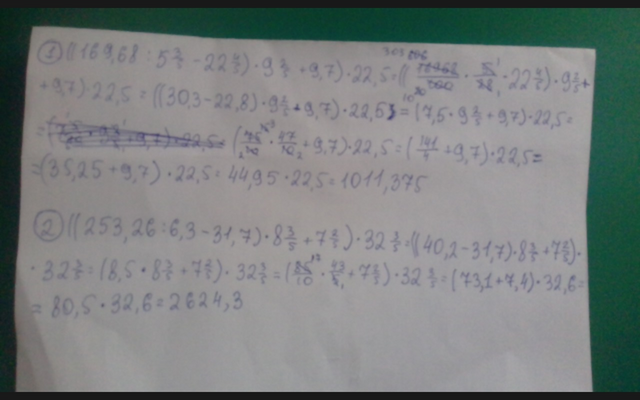 ① ((169,68 : 5 3/5 - 22 4/5) · 9 2/5 + 9,7) · 22,5 = ((16968/100 · 5/28 - 22 4/5) · 9 2/5 +
+ 9,7) · 22,5 = ((30,3 - 22,8) · 9 2/5 + 9,7) · 22,5 = (7,5 · 9 2/5 + 9,7) · 22,5 =
= (75/10 · 47/10 + 9,7) · 22,5 = (141/4 + 9,7) · 22,5 =
= (35,25 + 9,7) · 22,5 = 44,95 · 22,5 = 1011,375
② ((253,26 : 6,3 - 31,7) · 8 3/5 + 7 2/5) · 32 3/5 = ((40,2 - 31,7) · 8 3/5 + 7 2/5) ·
· 32 3/5 = (8,5 · 8 3/5 + 7 2/5) · 32 3/5 = (85/10 · 43/5 + 7 2/5) · 32 3/5 = (73,1 + 7,4) · 32,6 =
= 80,5 · 32,6 = 2624,3